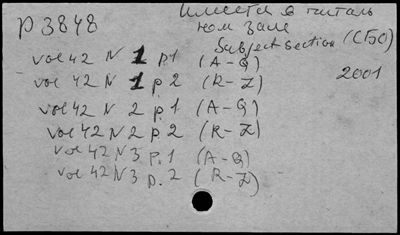 р 3848
Имеется в читаль
ном зале
Subject section (СБО)
vol 42 N 1 p.1 (A-Q)
vol 42 N 1 p. 2 (R-Z)
2001
vol 42 N 2 p.1 (A-Q)
vol 42 N 2 p 2 (R-Z)
vol 42 N 3 p. 1 (A-Q)
vol 42 N 3 p. 2 (R-Z)